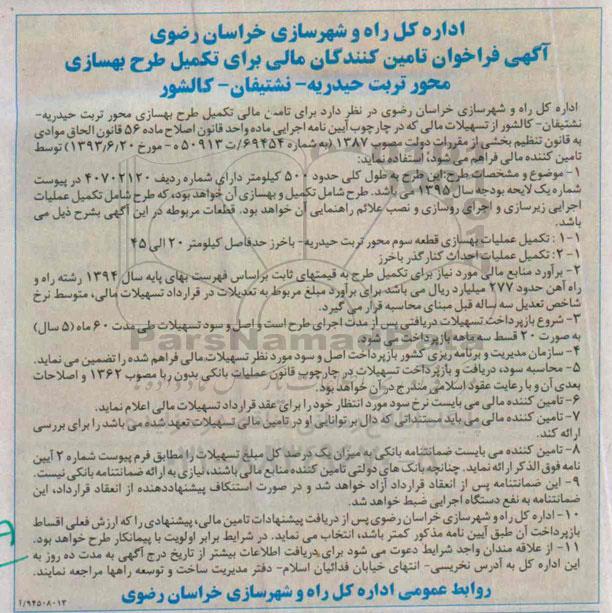 اداره کل راه و شهرسازی خراسان رضوی
آگهی فراخوان تامین کنندگان مالی برای تکمیل طرح بهسازی
محور تربت حیدریه- نشتیفان- کالشور
اداره کل راه و شهرسازی خراسان رضوی در نظر دارد برای تامین مالی تکمیل طرح بهسازی محور تربت حیدریه-
نشتیفان- کالشور از تسهیلات مالی که در چارچوب آیین نامه اجرایی ماده واحد قانون اصلاح ماده ۵۶ قانون الحاق موادی
به قانون تنظیم بخشی از مقررات دولت مصوب ۱۳۸۷ (به شماره ۶۹۴۵۴/ت ۵۰۹۱۳ ه - مورخ ۱۳۹۳/۶/۲۰) توسط
تامین کننده مالی فراهم می شود، استفاده نماید:
۱- موضوع و مشخصات طرح:این طرح به طول کلی حدود ۵۰۰ کیلومتر دارای شماره ردیف ۴۰۷۰۲۱۲۰ در پیوست
شماره یک لایحه بودجه سال ۱۳۹۵ می باشد. طرح شامل تکمیل و بهسازی آن خواهد بود، که طرح شامل تکمیل عملیات
اجرایی زیرسازی و اجرای روسازی و نصب علائم راهنمایی آن خواهد بود. قطعات مربوطه در این آگهی بشرح ذیل می
باشد.
۱-۱ : تکمیل عملیات بهسازی قطعه سوم محور تربت حیدریه- باخرز حدفاصل کیلومتر ۲۰ الی ۴۵
۲-۱ : تکمیل عملیات احداث کنارگذر باخرز
۲- برآورد منابع مالی مورد نیاز برای تکمیل طرح به قیمتهای ثابت براساس فهرست بهای پایه سال ۱۳۹۴ رشته راه و
راه آهن حدود ۲۷۷ میلیارد ریال می باشد برای برآورد مبلغ مربوط به تعدیلات در قرارداد تسهیلات مالی، متوسط نرخ
شاخص تعدیل سه ساله قبل مبنای محاسبه قرار می گیرد.
۳- شروع بازپرداخت تسهیلات دریافتی پس از مدت اجرای طرح است و اصل و سود تسهیلات طی مدت ۶۰ ماه (۵ سال)
به صورت ۲۰ قسط سه ماهه بازپرداخت می شود
۴- سازمان مدیریت و برنامه ریزی کشور بازپرداخت اصل و سود مورد نظر تسهیلات مالی فراهم شده را تضمین می نماید.
۵- محاسبه سود، دریافت و بازپرداخت تسهیلات در چارچوب قانون عملیات بانکی بدون ربا مصوب ۱۳۶۲ و اصلاحات
بعدی آن و با رعایت عقود اسلامی مندرج در آن خواهد بود.
۶- تامین کننده مالی می بایست نرخ سود مورد انتظار خود را برای عقد قرارداد تسهیلات مالی اعلام نماید.
۷- تامین کننده مالی می باید مستنداتی که دال بر توانایی او در تامین مالی تسهیلات تعهد شده می باشد را برای بررسی
ارائه کند.
۸- تامین کننده می بایست ضمانتنامه بانکی به میزان یک درصد کل مبلغ تسهیلات را مطابق فرم پیوست شماره ۲ آیین
نامه فوق الذکر ارائه نماید. چنانچه بانک های دولتی تامین کننده منابع مالی باشند، نیازی به ارائه ضمانتنامه بانکی نیست.
۹- این ضمانتنامه پس از انعقاد قرارداد آزاد خواهد شد و در صورت استنکاف پیشنهاددهنده از انعقاد قرارداد، این
ضمانتنامه به نفع دستگاه اجرایی ضبط خواهد شد.
۱۰- اداره کل راه و شهرسازی خراسان رضوی پس از دریافت پیشنهادات تامین مالی، پیشنهادی را که ارزش فعلی اقساط
بازپرداخت آن طبق آیین نامه مذکور کمتر باشد، انتخاب می نماید. در شرایط برابر اولویت با پیمانکار طرح خواهد بود.
۱۱- از علاقه مندان واجد شرایط دعوت می شود برای دریافت اطلاعات بیشتر از تاریخ درج آگهی به مدت ده روز به
این اداره کل به آدرس نخریسی- انتهای خیابان فدائیان اسلام- دفتر مدیریت ساخت و توسعه راهها مراجعه نمایند.
روابط عمومی اداره کل راه و شهرسازی خراسان رضوی
۹۴۵۰۸۰۱۳/آ
ParsNamadData